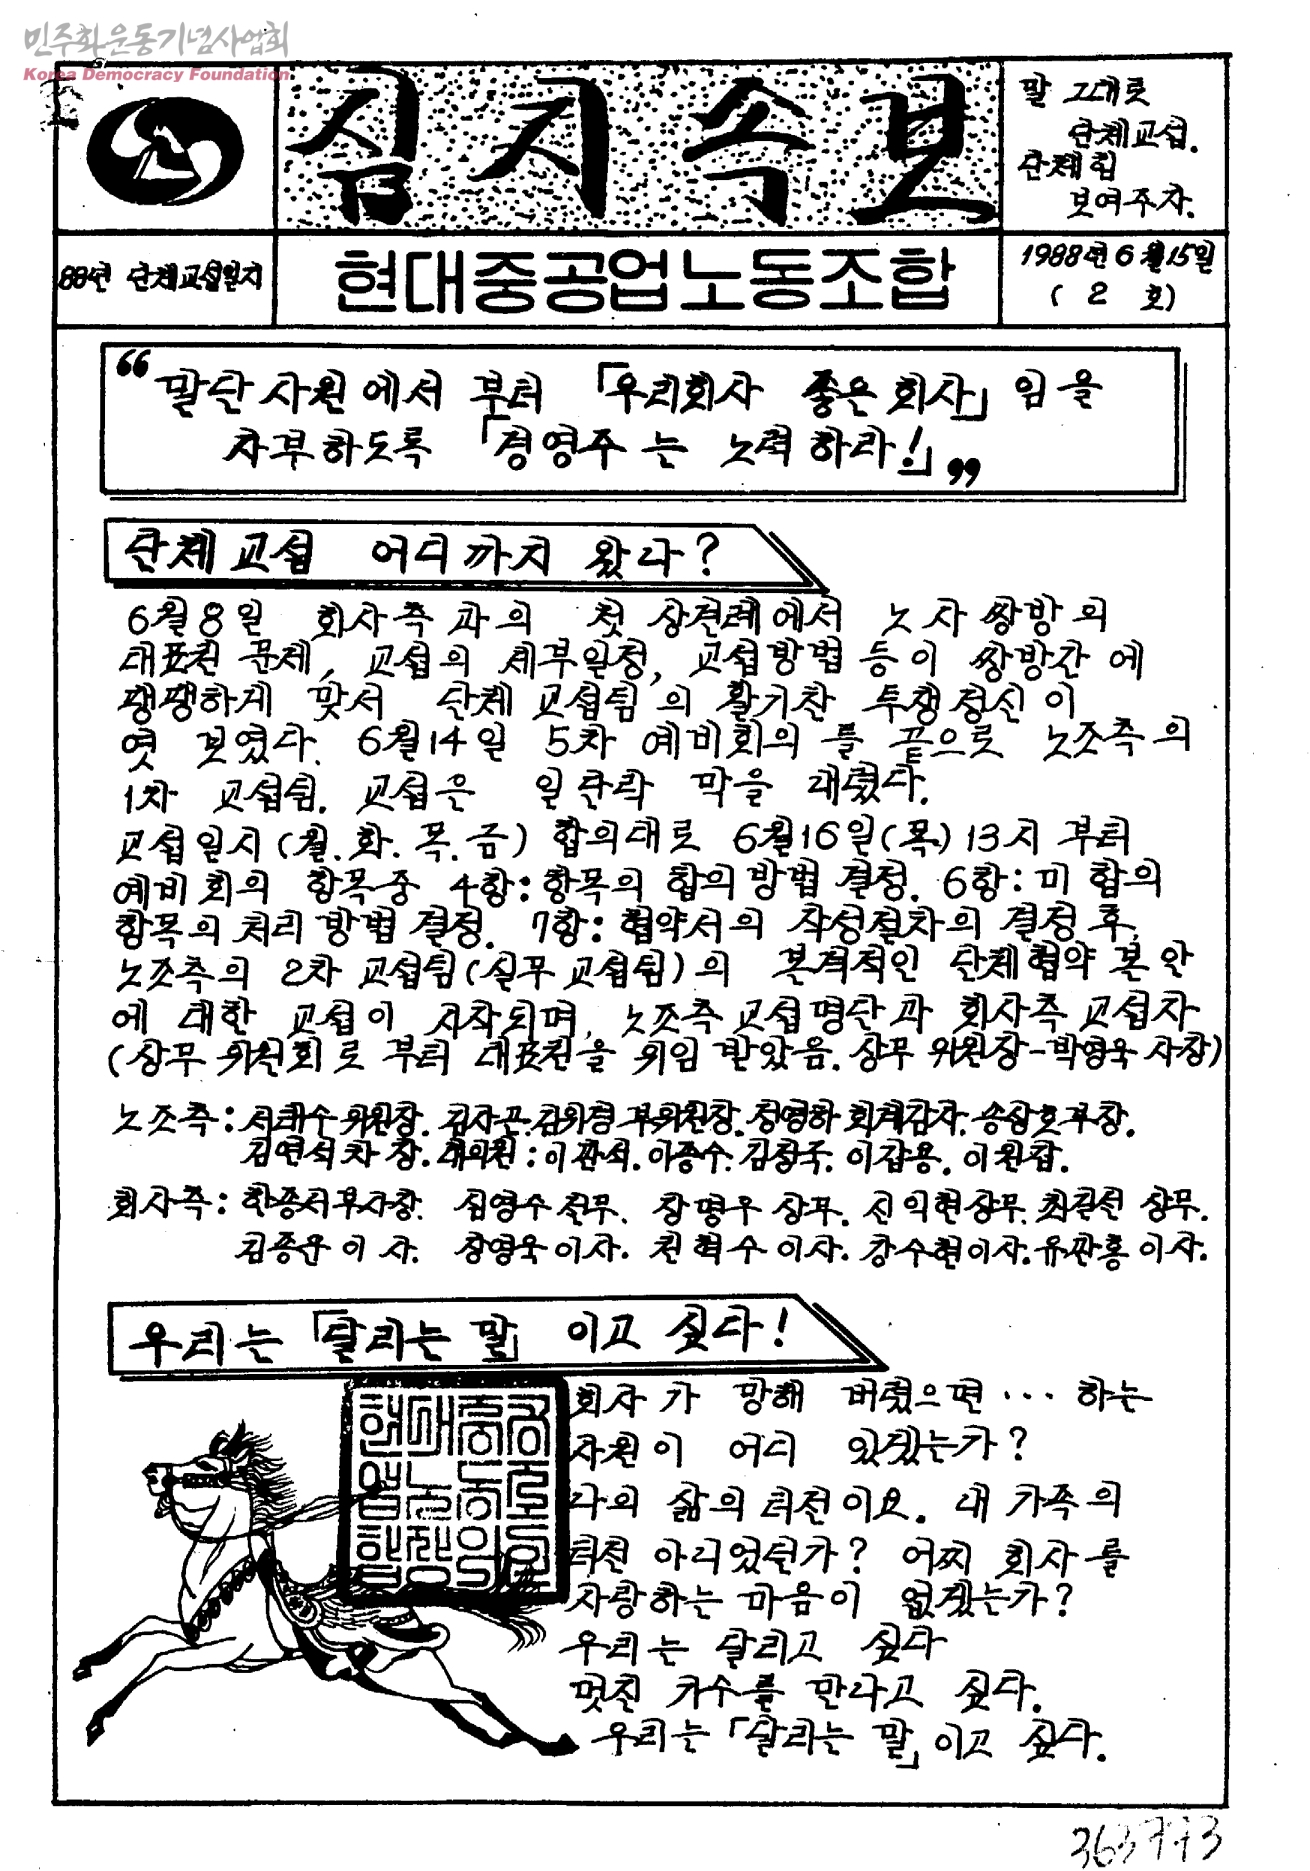 민주화운동기념사업회
Korea Democracy Foundation
심지속보
말 그대로
단체교섭.
단체힘
보여주자.
88년 단체교섭일지
현대중공업노동조합
1988년 6월15일
( 2 호)
“말단사원에서 부터 「우리회사 좋은회사」임을
자부하도록 「경영주는 노력하라!」”
단체교섭 어디까지 왔나?
6월8일 회사측과의 첫 상견례에서 노사쌍방의
대표권 문제, 교섭의 세부일정, 교섭방법 등이 쌍방간에
팽팽하게 맞서 단체교섭팀의 활기찬 투쟁정신이
엿보였다. 6월14일 5차 예비회의를 끝으로 노조측의
1차 교섭팀. 교섭은 일단락 막을 내렸다.
교섭일시(월.화.목.금) 합의대로 6월16일(목)13시 부터
예비회의 항목중 4항:항목의 합의방법 결정. 6항:미합의
항목의 처리방법결정. 7항:협약서의 작성절차의 결정후,
노조측의 2차 교섭팀(실무교섭팀)의 본격적인 단체협약 본안
에 대한 교섭이 시작되며, 노조측교섭명단과 회사측교섭자
(상무위원회로 부터 대표권을 위임받았음. 상무위원장-박영욱사장)
노조측:서태수위원장. 김위경부위원장. 정영하회계감사. 송상호부장.
김연석차장. 대의원:이관석. 이종수. 김창국. 이갑용. 이원갑.
회사측:한종서부사장. 심영수전무. 장명우상무. 신익현상무. 최길선상무.
김종운이사. 장영욱이사. 천혁수이사. 강수현이사. 유관홍이사.
우리는 「달리는 말」이고 싶다!
회사가 망해 버렸으면… 하는
사원이 어디 있겠는가?
나의 삶의 터전이요. 내 가족의
터전 아니었던가? 어찌 회사를
사랑하는 마음이 없겠는가?
우리는 달리고 싶다
멋진 기수를 만나고 싶다.
우리는 「달리는 말」이고 싶다.
현대중공
업노동조
합
363773